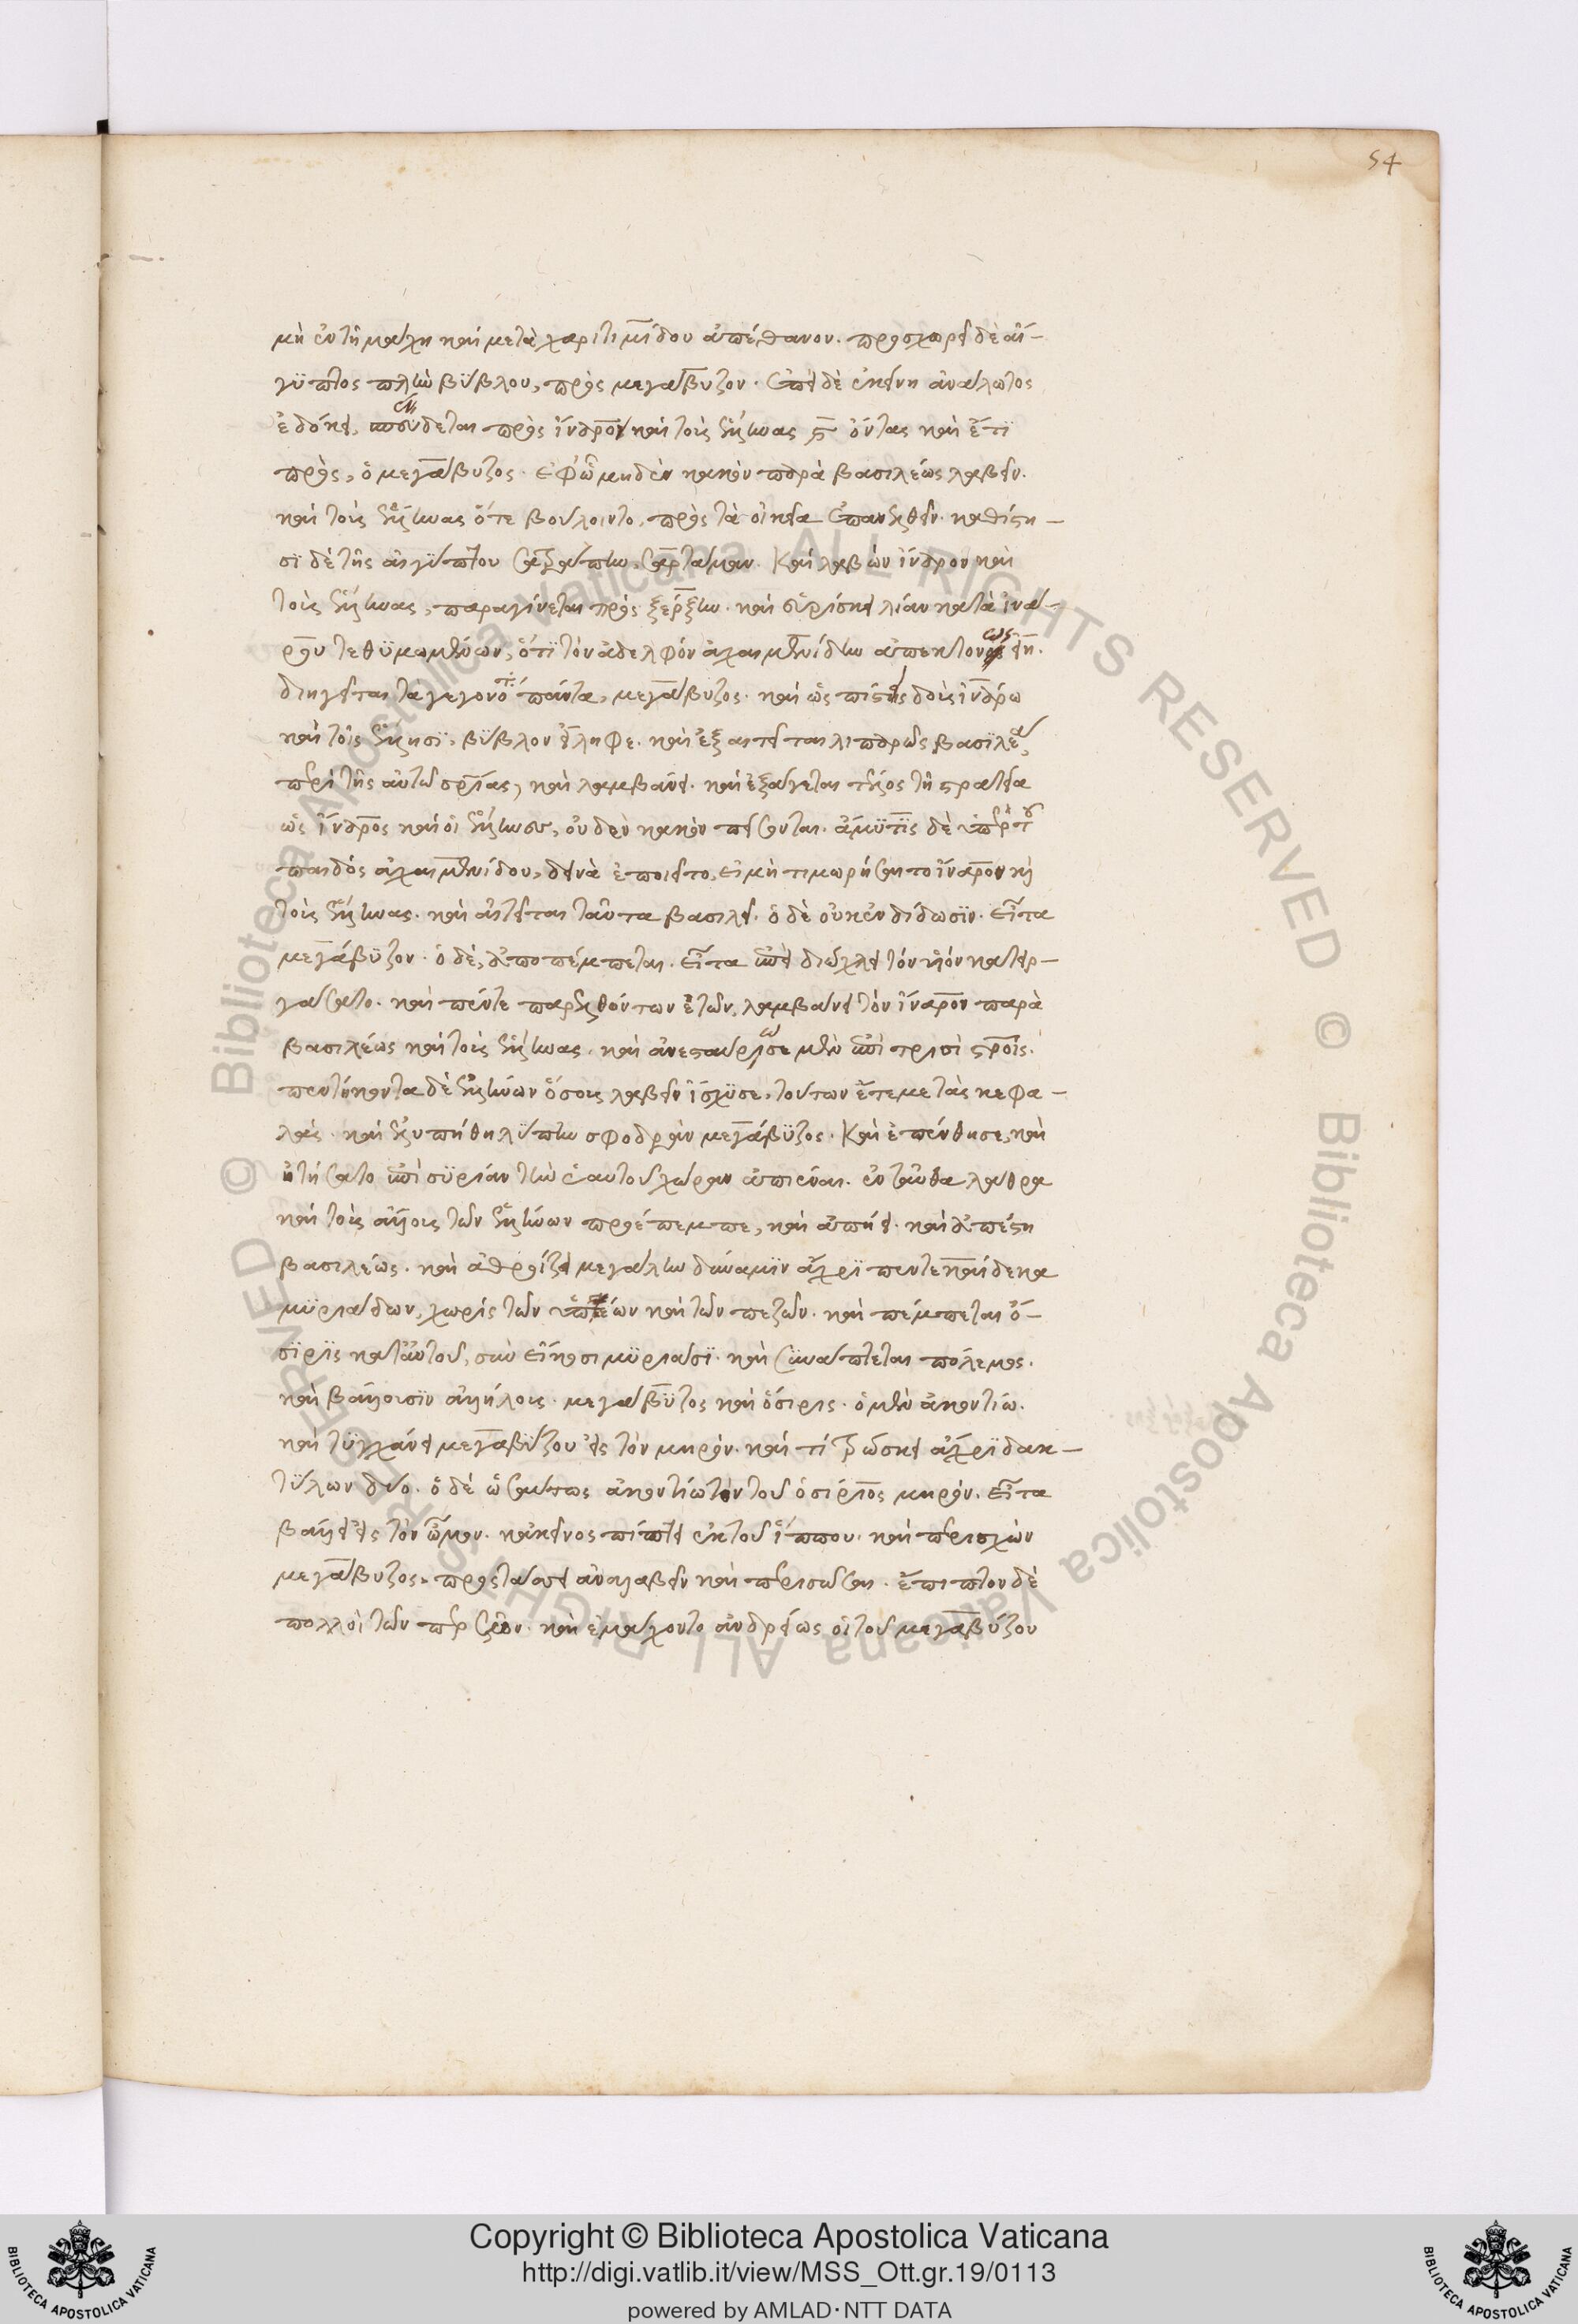 54
μὴ ἐν τῆ μάχη καὶ μετὰ χαριτιμίδου ἀπέθανον. προσχωρεῖ δὲ αἴ-
γυπτος πλὴν βύβλου, πρὸς μεγάβυζον. ἐπεὶ δὲ ἐκείνη ἀνάλωτος
ἐδόκει, σπένδεται πρὸς ἴναρον καὶ τοὺς ἕλληνας ὄντας καὶ ἔτι
πρὸς, ὁ μεγάβυζος. ἐφ' ᾧ μηδὲν κακὸν παρὰ βασιλέως λαβεῖν.
καὶ τοὺς ἕλληνας ὅτε βούλοιντο, πρὸς τὰ οἰκεῖα ἐπανελθεῖν. καθίστη-
σι δὲ τῆς αἰγύπτου σατράπην, σαρτάμαν. Καὶ λαβὼν ἴναρον καὶ
τοὺς ἕλληνας, παραγίνεται πρὸς ξέρξην. καὶ εὑρίσκει λίαν κατὰ ἰνά-
ρου τεθυμωμένον, ὅτι τὸν ἀδελφὸν ἀχαιμενίδην ἀπεκτονὼς εἴη.
διηγεῖται τὰ γεγονότα πάντα, μεγάβυζος. καὶ ὡς πίστεις δοὺς ἰνάρω
καὶ τοῖς ἕλλησι, βύβλον εἴληφε. καὶ ἐξαιτεῖται λιπαρῶς βασιλέα,
περὶ τῆς αὐτῶν σωτηρίας, καὶ λαμβάνει. καὶ ἐξάγεται τέλος τῆ στρατεία
ὡς ἴναρος καὶ οἱ ἕλληνες, οὐδὲν κακὸν πείσονται. ἄμυτις δὲ ὑπὲρ τοῦ
παιδὸς ἀχαιμενίδου, δεινὰ ἐποιεῖτο, εἰ μὴ τιμωρήσαιτο ἴναρον καὶ
τοὺς ἕλληνας. καὶ αἰτεῖται ταῦτα βασιλεῖ. ὁ δὲ οὐκ ἐνδίδωσιν. εἶτα
μεγάβυζον. ὁ δὲ, ἀποπέμπεται. εἶτα ἐπεὶ διώχλει τὸν υἱὸν κατειρ-
γάσατο. καὶ πέντε παρελθόντων ἐτῶν, λαμβάνει τὸν ἴναρον παρὰ
βασιλέως καὶ τοὺς ἕλληνας. καὶ ἀνεσταύρωσε μὲν ἐπὶ τρισὶ σταυροῖς.
πεντήκοντα δὲ ἑλλήνων ὅσους λαβεῖν ἴσχυσε, τούτων ἔτεμε τὰς κεφα-
λάς. καὶ ἐλυπήθη λύπην σφοδρὰν μεγάβυζος. Καὶ ἐπένθησε, καὶ
ἠτήσατο ἐπὶ συρίαν τὴν ἑαυτοῦ χώραν ἀπιέναι. ἐνταῦθα λάθρα
καὶ τοὺς ἄλλους τῶν ἑλλήνων προέπεμπε, καὶ ἀπήει. καὶ ἀπέστη
βασιλέως. καὶ ἀθροίζει μεγάλην δύναμιν ἄχρι πεντεκαίδεκα
μυριάδων, χωρὶς τῶν ἱππέων καὶ τῶν πεζῶν. καὶ πέμπεται ὄ-
σιρις κατ' αὐτοῦ, σὺν εἴκοσι μυριάσι. καὶ συνάπτεται πόλεμος.
καὶ βάλλουσιν ἀλλήλους. μεγάβυζος καὶ ὄσιρις. ὁ μὲν ἀκοντίω.
καὶ τυγχάνει μεγαβύζου εἰς τὸν μηρόν. καὶ τιτρώσκει ἄχρι δακ-
τύλων δύο. ὁ δὲ ὡσαύτως ἀκοντίω τὸν τοῦ ὀσίριος μηρόν. εἶτα
βάλλει εἰς τὸν ὦμον. κἀκεῖνος πίπτει ἐκ τοῦ ἵππου. καὶ περισχὼν
μεγάβυζος, προστάσσει ἀναλαβεῖν καὶ περισῶσαι. ἔπιπτον δὲ
πολλοὶ τῶν περσῶν. καὶ ἐμάχοντο ἀνδρείως οἱ τοῦ μεγαβύζου
Copyright © Biblioteca Apostolica Vaticana
http://digi.vatlib.it/view/MSS_Ott.gr.19/0113
powered by AMLAD·NTT DATA